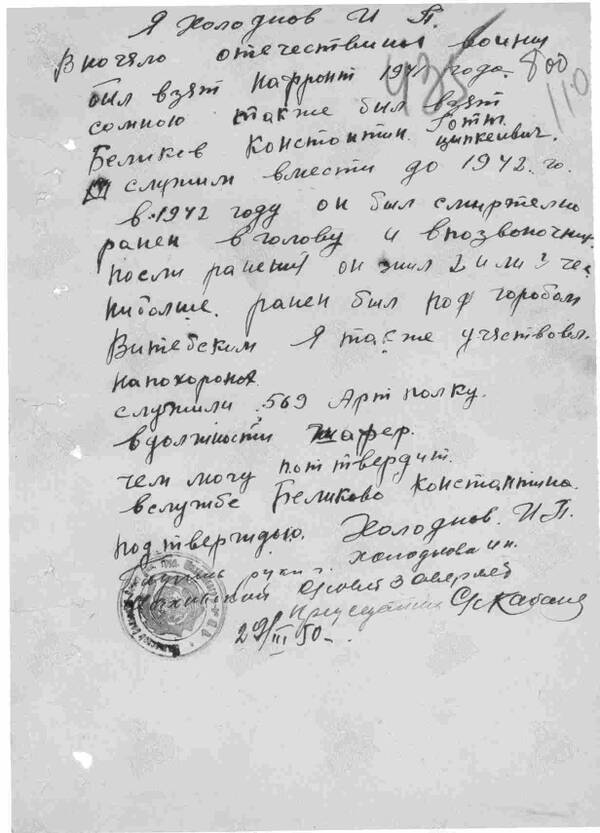 Я Холоднов И П.
Вночяло отечествины воины
был взят нафронт 1941 года. 800
сомною также был взят 110
Беликов Константин Готт
цинкеивич.
служили вмести до 1942. го.
в 1942 году он был смиртелно
ранен вголову и впозвоночник
посли ранений он жил 2 или 3 ча
ниболше. ранен был под городом
Витебском Я также участвовал
напохоронах
служили 569 Арт полку.
вдолжности шафер.
чем могу потвердит.
вслужбе Беликово Константина.
подтверждаю. Холоднов. И.П.
Подпись руки г. Холоднова ип.
заверяет
29/III 50